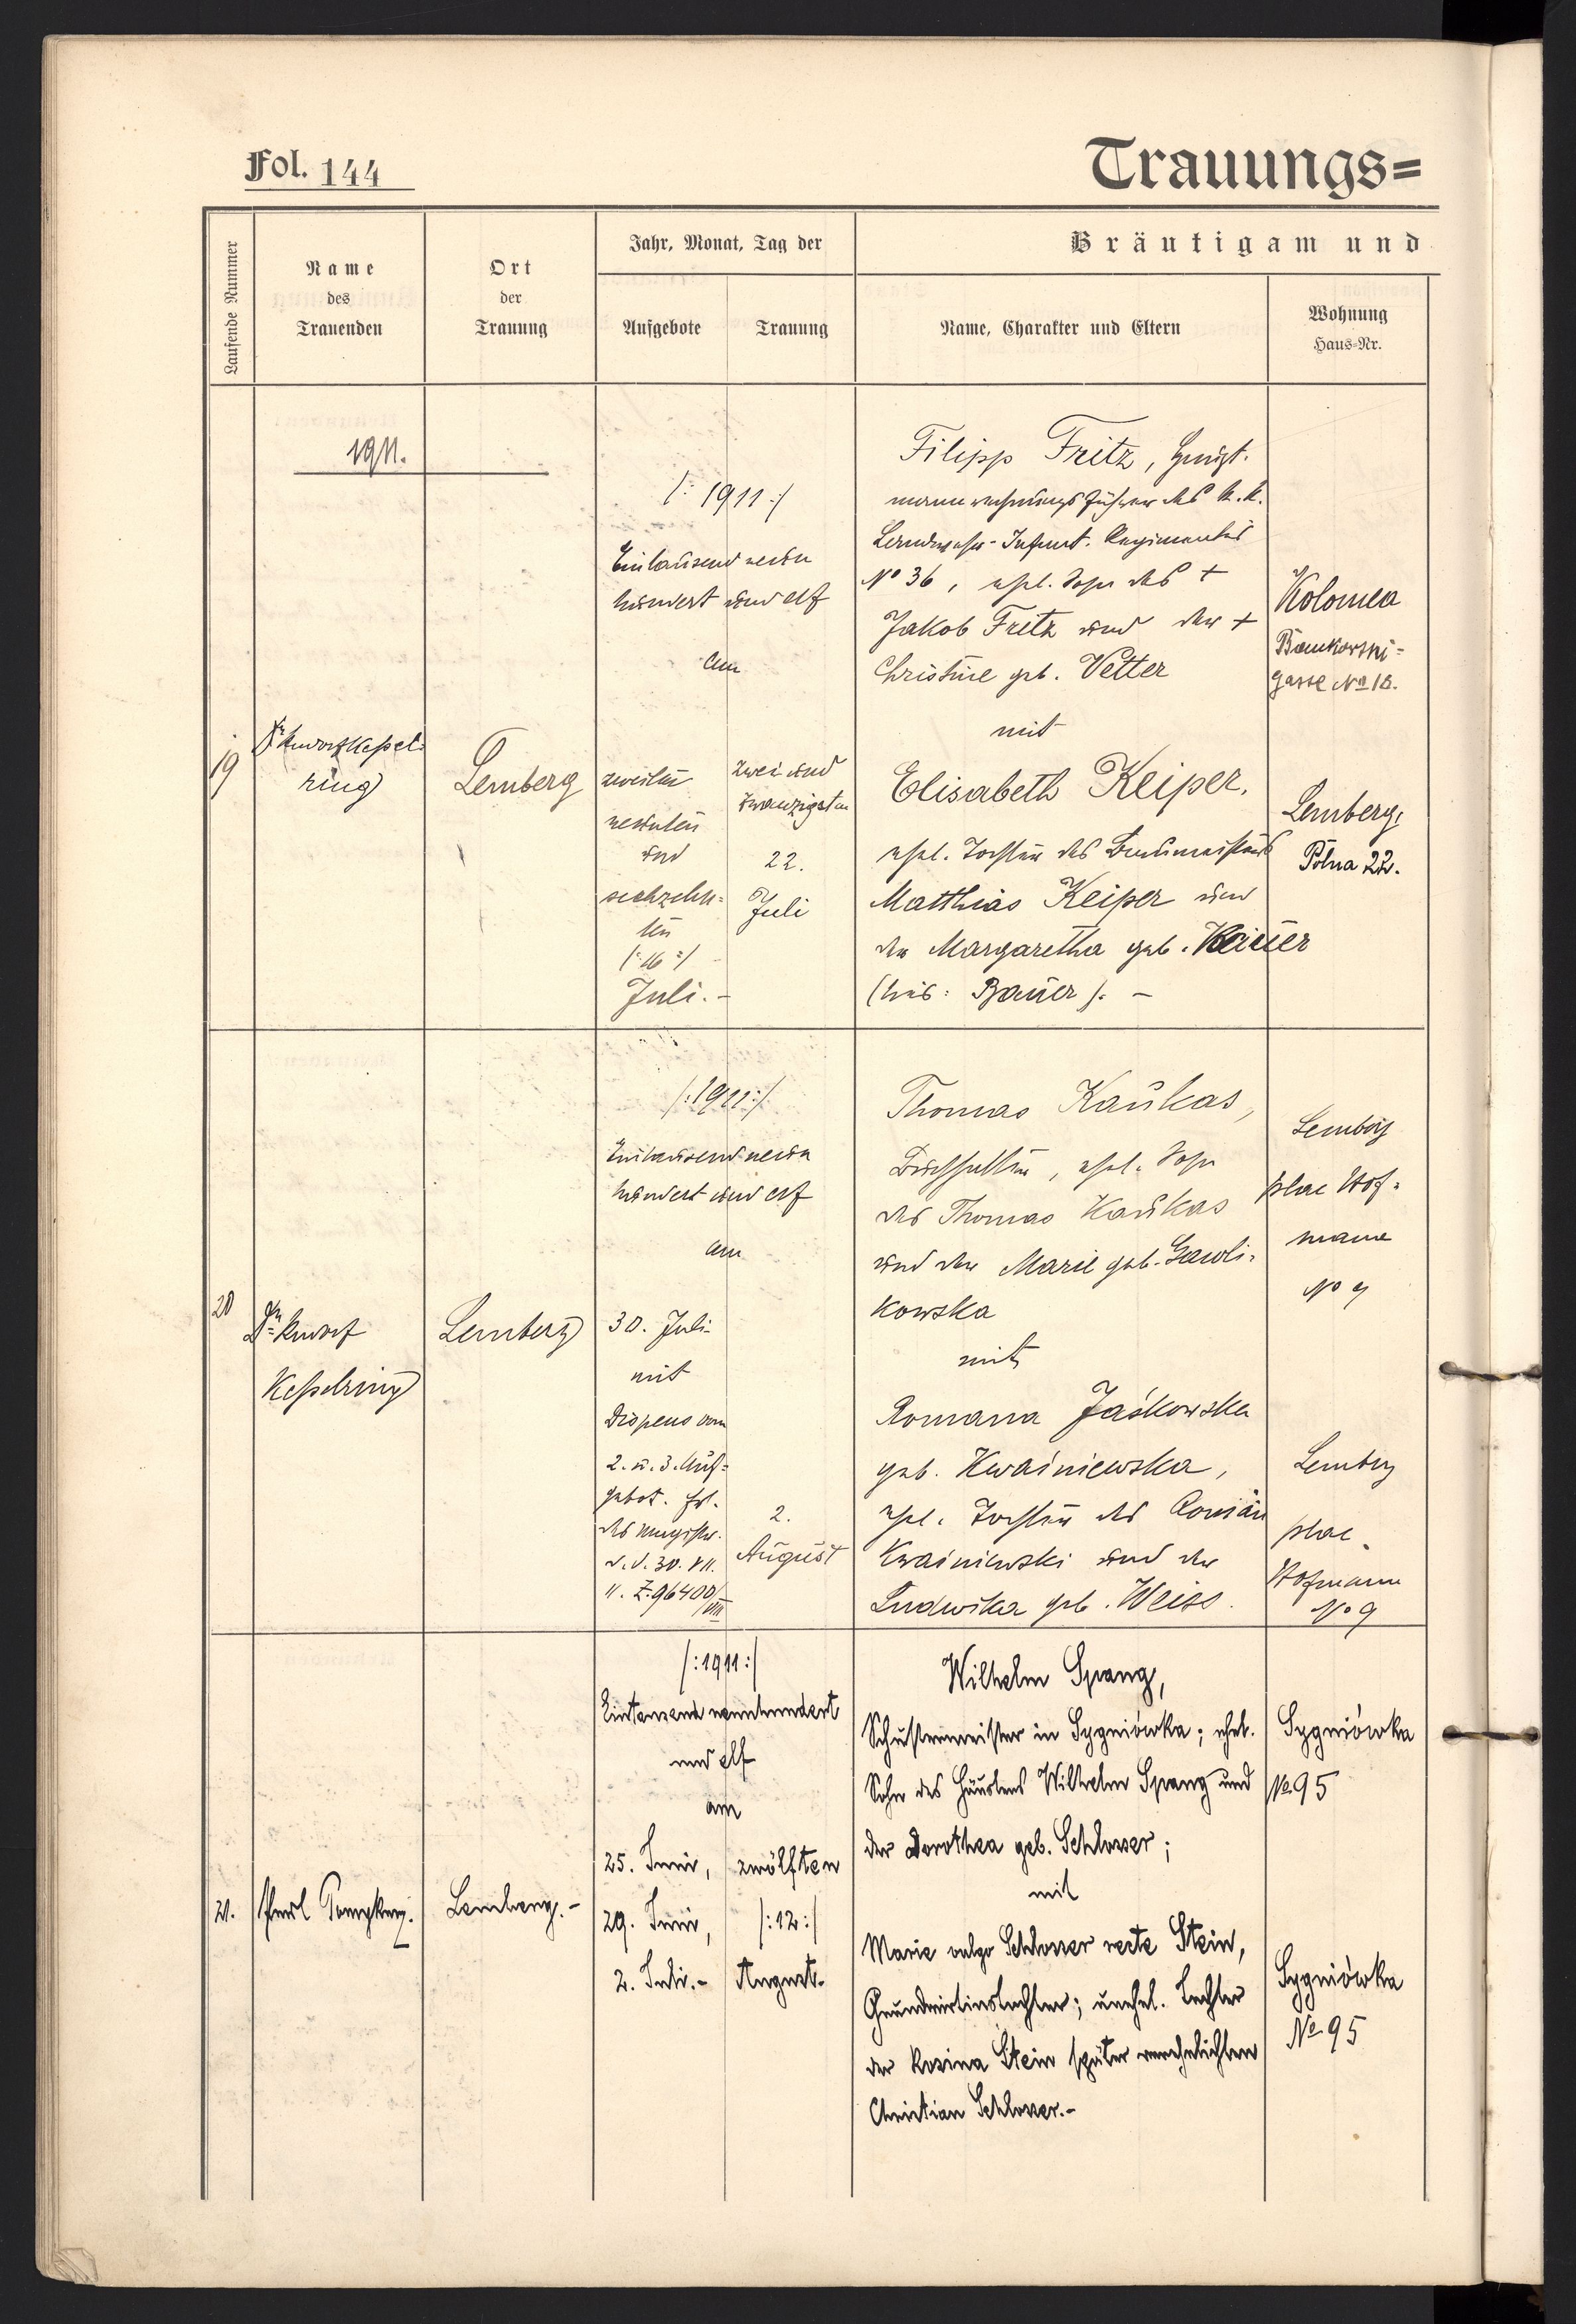 Fol. 144
Trauungs=
Laufende Nummer
Name
des
Trauenden
Ort
der
Trauung
Jahr, Monat, Tag der
Aufgebote
Trauung
Bräutigam und
Name, Charakter und Eltern
Wohnung
Haus-Nr.
1911.
19
Kessel-
ring
Lemberg
/: 1911 :/
Eintausend neun
hundert und elf
am
zweiten
neunten
und
sechzehn=
ten
/: 16 :/
Juli. -
Zwei und
zwanzigsten
22.
Juli
Filipp Fritz,
rechnungsführer des k. k.
Landwehr-Infant. Regimentes
No 36, ehel. Sohn des +
Jakob Fritz und der +
Christine geb. Vetter
mit
Elisabeth Keiper,
ehel. Tochter des Baumeisters
Matthias Keiper und
der Margaretha geb.
(: Bauer). -
Kolomea
gasse No 18.
Lemberg,
Polna 22.
20
Dr Rudolf
Kesselring
Lemberg
/: 1911 :/
Eintausend neun
hundert und elf
am
30. Juli
mit
Dispens vom
2. u. 3. Auf=
gebot.
des Magistr.
d. d. 30. VII.
11. Z. 96400/VIII
2.
August
Thomas Kaukas,
Buchhalter, ehel. Sohn
des Thomas Kaukas
und der Marie geb. Gawli-
kowska
mit
Romana Jaśkowska
geb. Kwaśniewska,
ehel. Tochter des Roman
Kwaśniewski und der
Ludwika geb. Weiss.
Lemberg
plac Hof-
mana
No 9
Lemberg
plac
Hofmann
No 9
21.
Lemberg. -
/: 1911 :/
Eintausend neunhundert
und elf
am
25. Juni,
29. Juni,
2. Juli. -
zwölften
/: 12 :/
August. -
Wilhelm Spang,
Schustermeister in Sygniówka; ehel.
Sohn des Häuslers Wilhelm Spang und
der Dorothea geb. Schlosser;
mit
Marie vulgo Schlosser recte Stein,
Grundwirtinstochter; unehel. Tochter
der Rosina Stein später verehelichten
Christian Schlosser. -
Sygniówka
No 95
Sygniówka
No 95